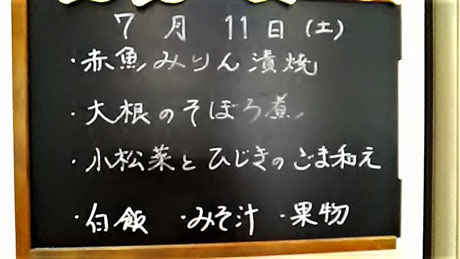 7月11日(土)
・赤魚みりん漬焼
・大根のそぼろ煮
・小松菜とひじきのごま和え
・白飯 ・みそ汁 ・果物